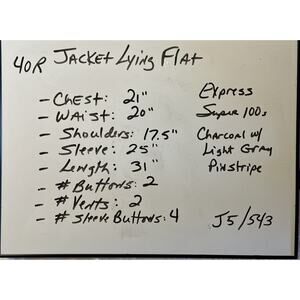 40R JACKET Lying FLAT
- CHEST: 21"
- WAIST: 20"
- Shoulders: 17.5"
- Sleeve: 25"
- Length: 31"
- # Buttons: 2
- # Vents: 2
- # Sleeve Buttons: 4
Express
Super 100s
Charcoal w/
Light Gray
Pinstripe
J5/543